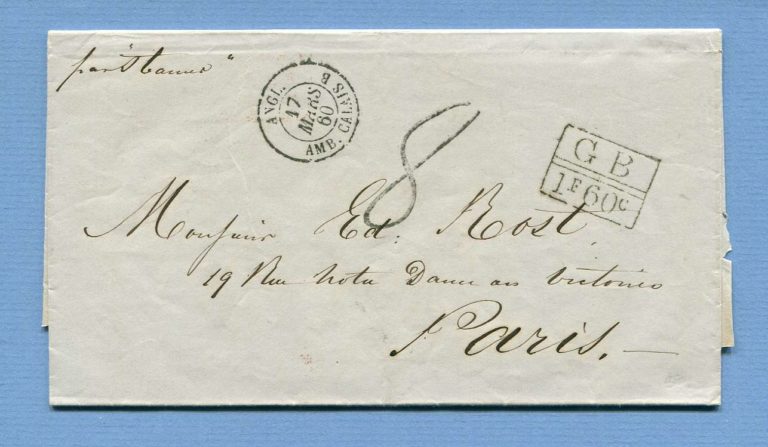 par
ANGL. AMB. CALAIS B
17
MARS
60
8
G B
1F60c
Monsieur Ed: Rost,
19 Rue Notre Dame des Victoires
Paris.